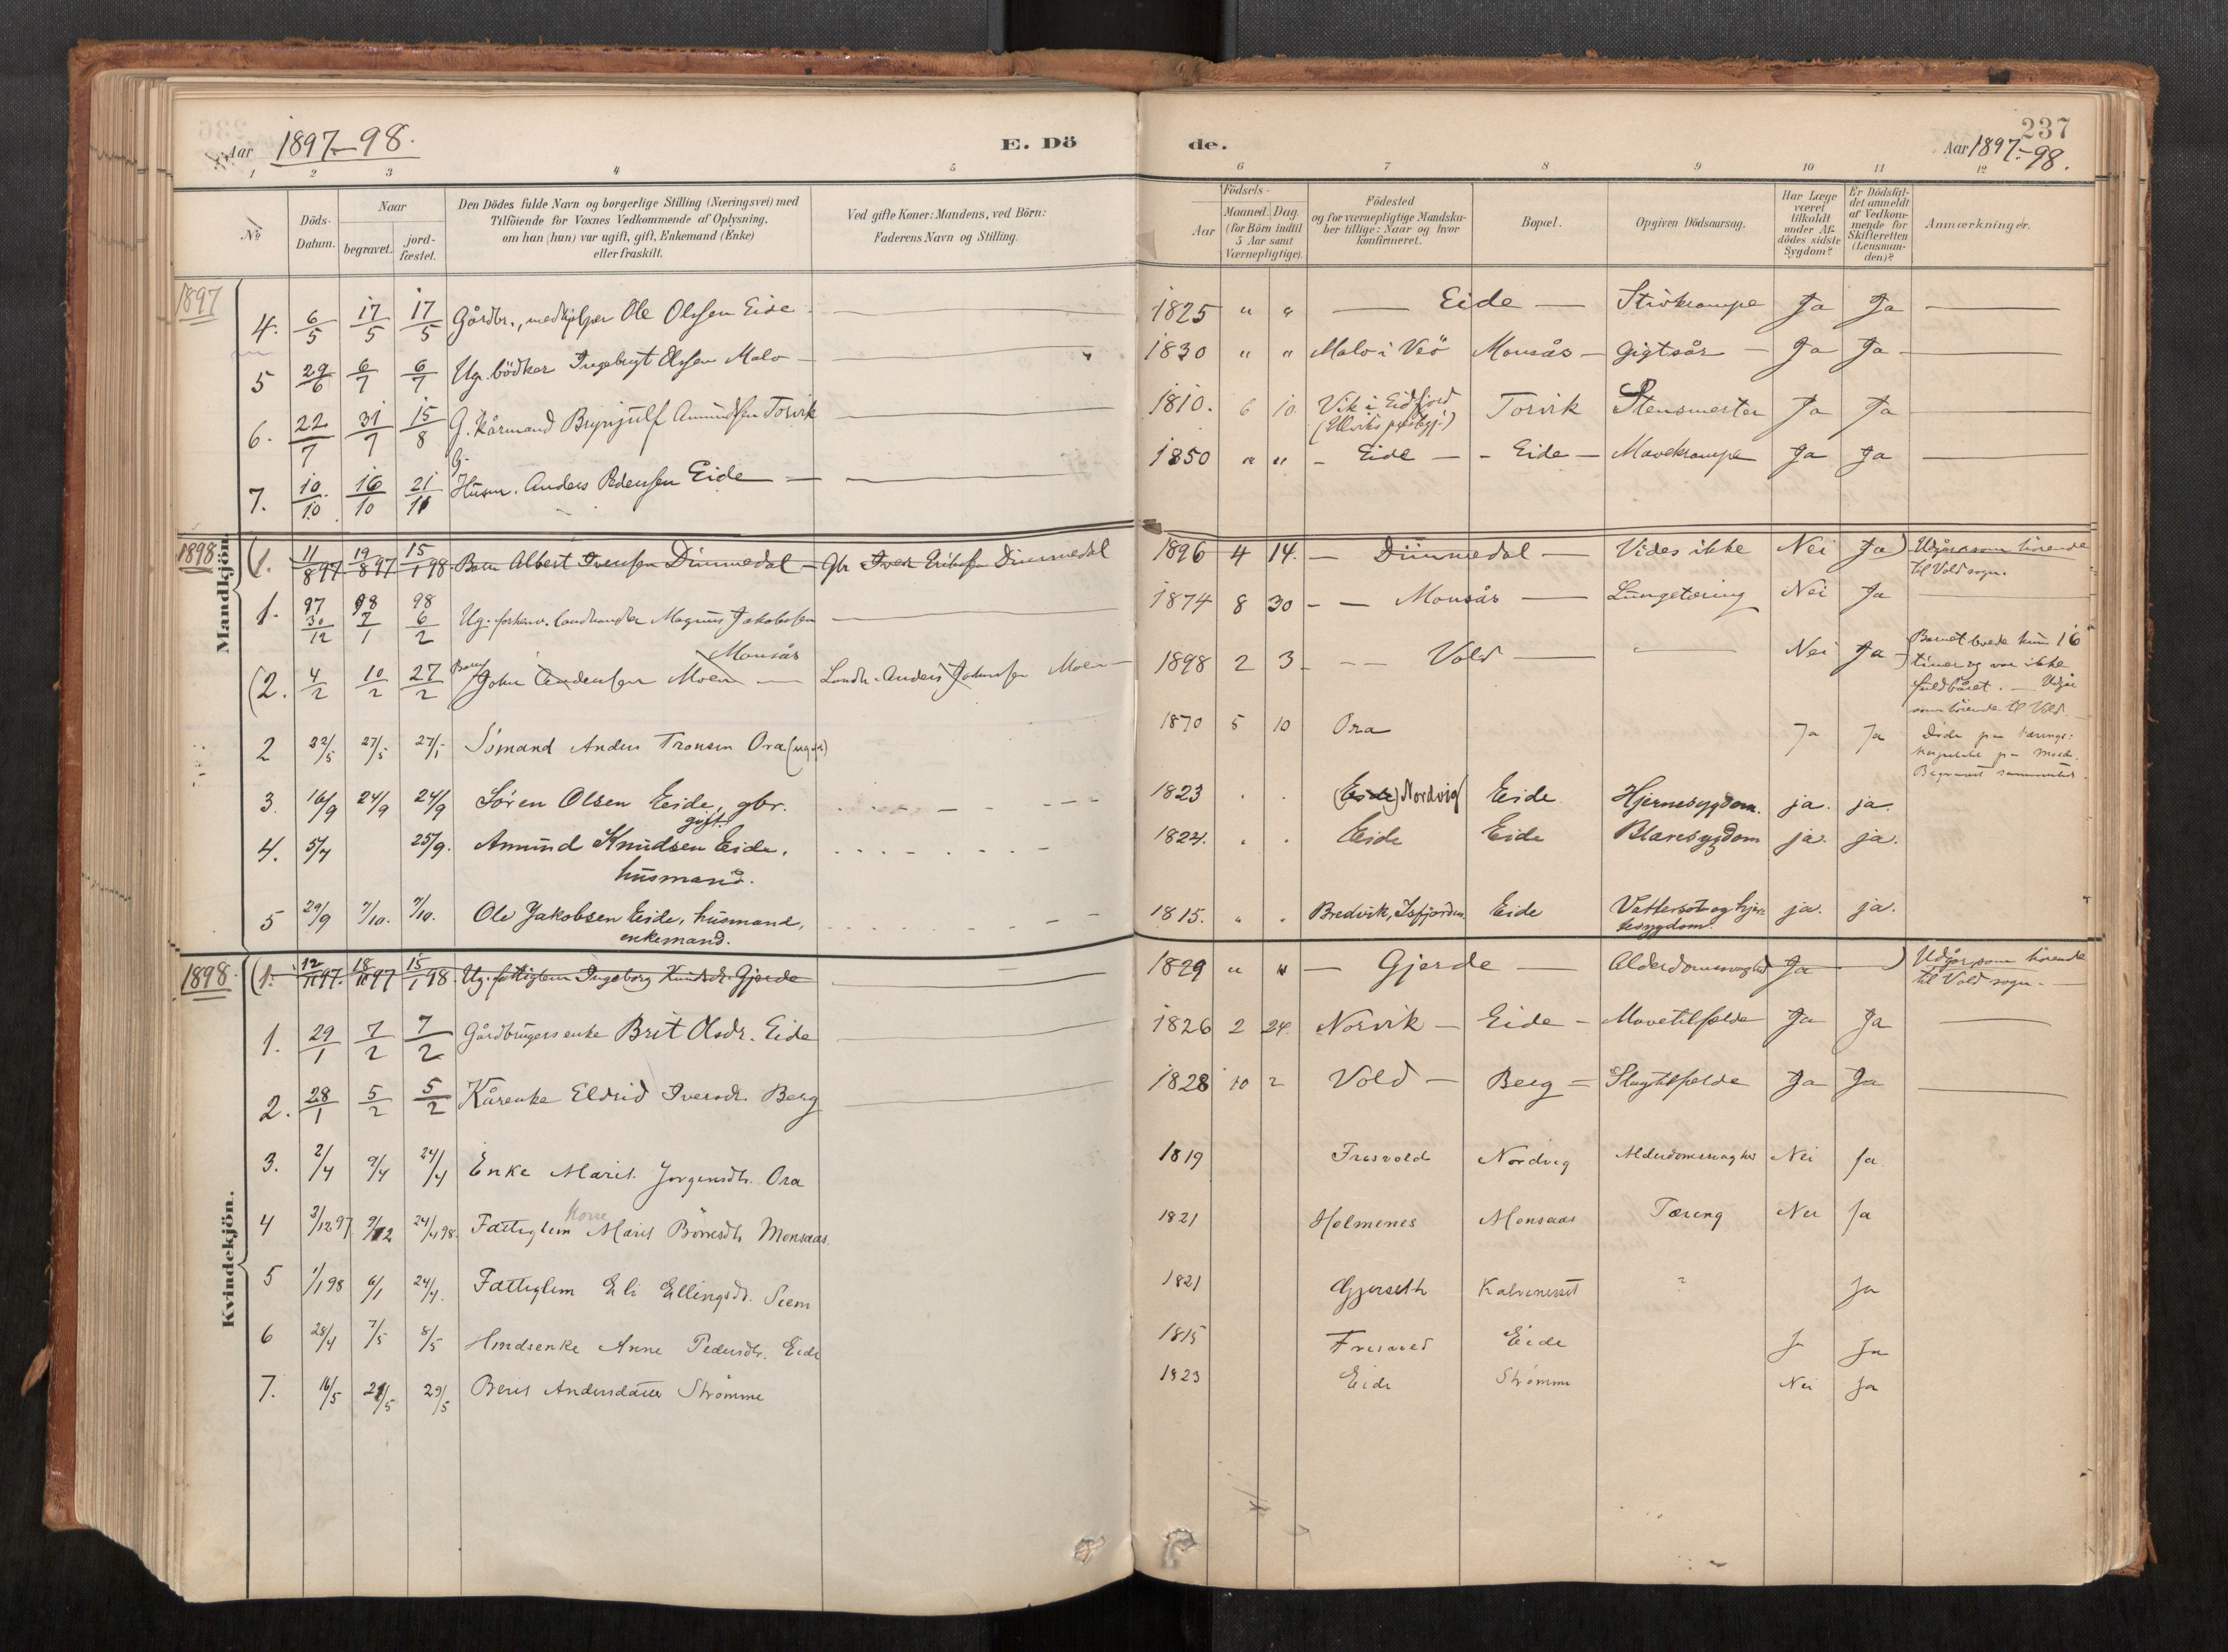 237
Aar 1897-98. E. Dö de. Aar 1897-98.
1 2 3 4 5 6 7 8 9 10 11 12
№ Döds-Datum. Naar begravet. jord-fæstet. Den Dödes fulde Navn og borgerlige Stilling (Næringsvei) med Tilföiende for Voxnes Vedkommende af Oplysning, om han (hun) var ugift, gift, Enkemand (Enke) eller fraskilt. Ved gifte Koner: Mandens, ved Börn: Faderens Navn og Stilling. Födsels- Aar Maaned. Dag. (for Börn indtil 5 Aar samt Værnepligtige). Födested og for værnepligtige Mandskaber tillige: Naar og hvor konfirmeret. Bopæl. Opgiven Dödsaarsag. Har Læge været tilkaldt under Afdödes sidste Sygdom? Er Dödsfaldet anmeldt af Vedkommende for Skifteretten (Lensmanden)? Anmærkninger.
1897
Mandkjön.
4. 6/5 17/5 17/5 Gårdbr., medhjelper Ole Olsen Eide — 1825 " " — Eide — Ja Ja —
5 29/6 6/7 6/7 Ug. bödker Ingebrigt Olsen Malo — 1830 " " Malo i Veö Monsås — Gigtsår — Ja Ja —
6. 22/7 31/7 15/8 G. Kårmand Brynjulf Amundsen Torvik — 1810. 6 10. Vik i Eidfjord Torvik Stensmerter Ja Ja —
7. 10/10 16/10 21/11 G. Husm. Anders Pedersen Eide — 1850 " " - Eide - - Eide - Mavekrampe Ja Ja —
1898
(1. 11/8 97 19/8 97 15/1 98. Barn Albert Iversen Dümmedal — Gbr Iver Eriksen Dümmedal 1896 4 14. — Dümmedal — Vides ikke Nei Ja) Udgår som hörende til Vold sogn.
1. 97 30/12 98 7/1 98 6/2 Ug. forhenv. landhandler Magnus Jakobsen Monsås — 1874 8 30 — Monsås — Lungetæring Nei Ja —
(2. 4/2 10/2 27/2 Barn John Andersen Moen — Landh. Anders Johnsen Moen — 1898 2 3 — Vold — Nei Ja) Barnet levede kun 16 timer og var ikke fuldbåret. — Udgår som hörende til Vold.
2 22/5 27/5 27/5 Sömand Anders Tronsen Ora (ugift) 1870 5 10 Ora Ja Ja Döde paa
3. 16/9 24/9 24/9 Sören Olsen Eide, gbr. gift. 1823 . . (Eide) Nordvig Eide Hjernesygdom. ja. ja.
4. 5/7 25/9. Amund Knudsen Eide, husmand. 1824. . . Eide Eide Blæresygdom ja. ja.
5 29/9 7/10. 7/10. Ole Jakobsen Eide, husmand, enkemand. 1815. " . Bredvik, Isfjorden. Eide Vattersot og hjertesygdom. ja. ja.
1898.
Kvindekjön.
(1. 12/11 97. 18/11 97 15/1 98. Ug. fattiglem Ingeborg Knudsdr. Gjerde — 1829 " " — Gjerde — Alderdomssvaghed Ja —) Udgår som hörende til Vold sogn. —
1. 29/1 7/2 7/2 Gårdbrugers enke Brit Olsdr. Eide — 1826 2 24. Norvik — Eide — Mavetilfælde Ja Ja —
2. 28/1 5/2 5/2 Kårenke Eldrid Iversdr. Berg — 1828 10 2 Vold — Berg — Slagtilfælde Ja Ja —
3. 2/4 9/4 24/4 Enke Marit Jorgensdtr. Ora 1819 Nordvig Alderdomssvaghed Nei Ja
4 3/12 97 9/12 24/4 98. Fattiglem Kone Marit Börresdtr Monsaas. 1821 Holmenes Monsaas Tæring Nei Ja
5 1/1 98 6/1 24/4. Fattiglem Eli Ellingsdr. Siem 1821 Gjerseth ? Ja
6 28/4 7/5 8/5 Anne Pedersdtr. Eide 1815 Eide Ja Ja
7. 16/5 21/5 29/5 Berit Andersdatter Strömme 1823 Eide Strömme Nei Ja